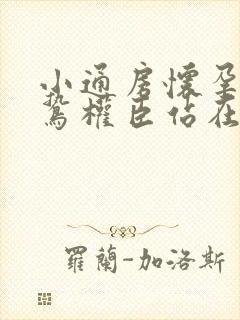 小通房懷孕
鷙權臣佔在
羅蘭-加洛斯